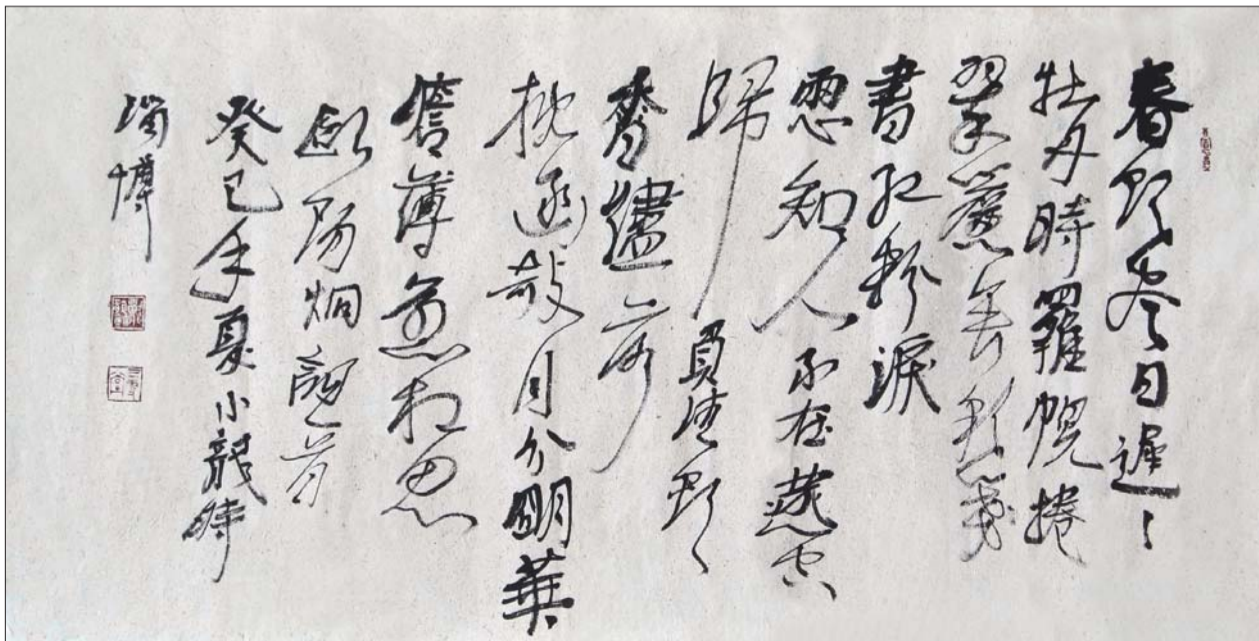 春欲盡日遲〻
牡丹時羅幌捲
翠簾垂彩箋
書紅粉淚
兩心知人不在燕空
歸負佳期
香燼落
枕函欹月分明華
澹薄惹相思
歐陽炯詞一首
癸巳年夏小龍時
博